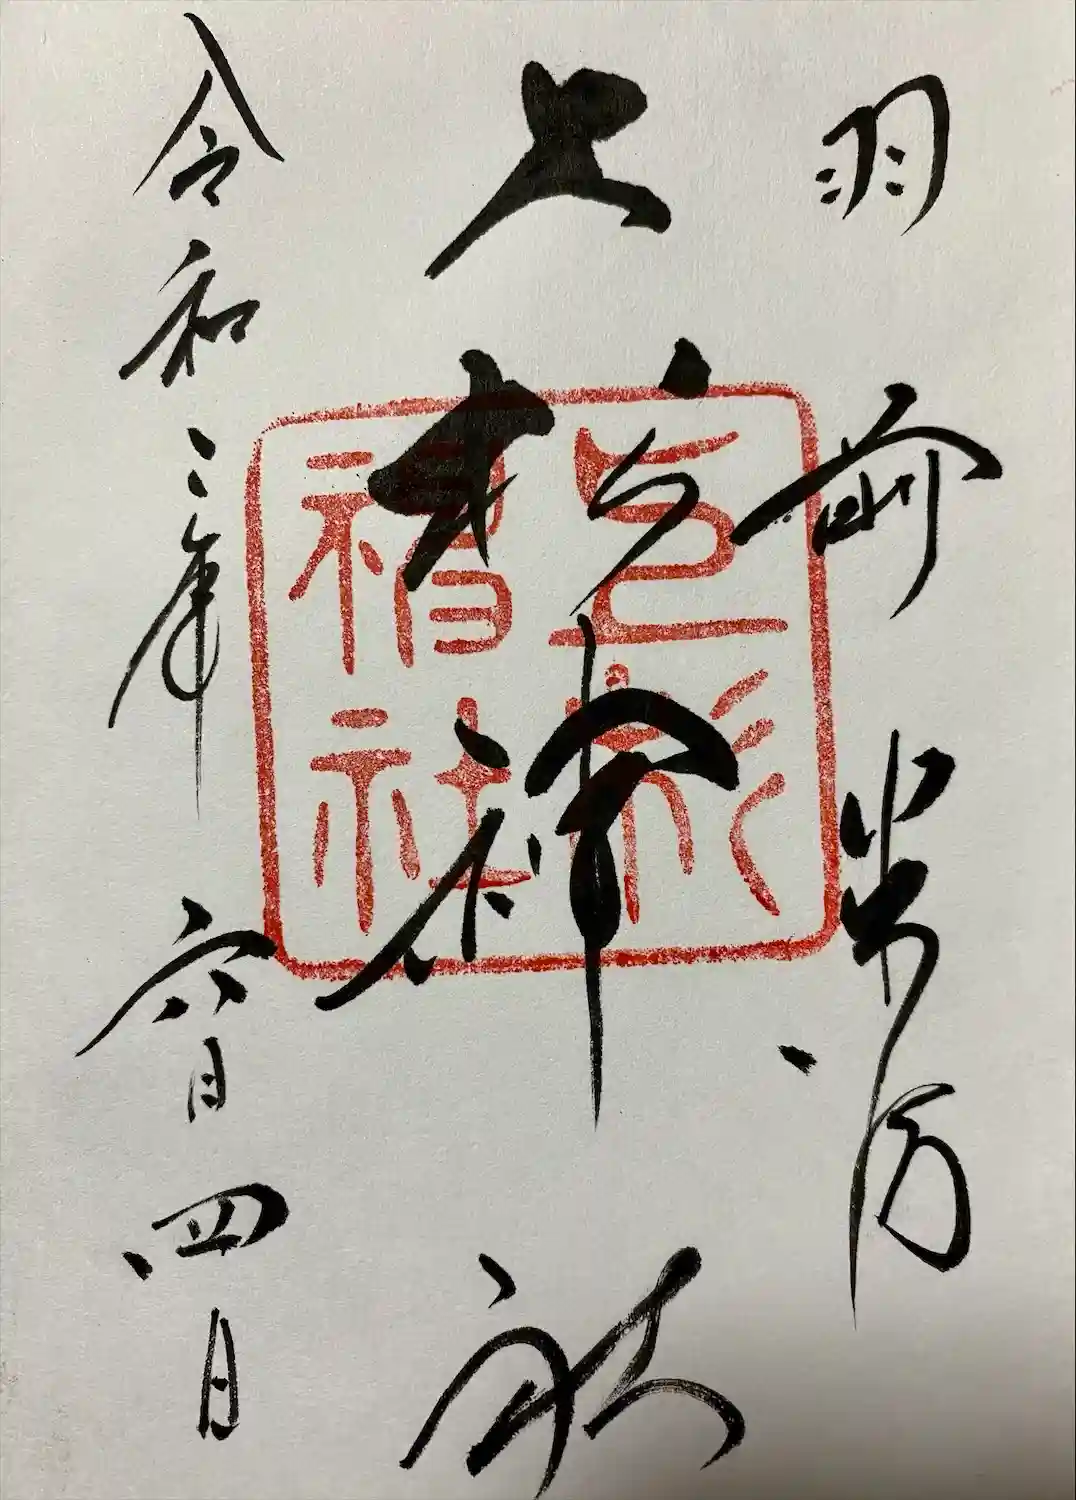 羽前米沢
上杉神社
令和二年六月四日
上杉
神社